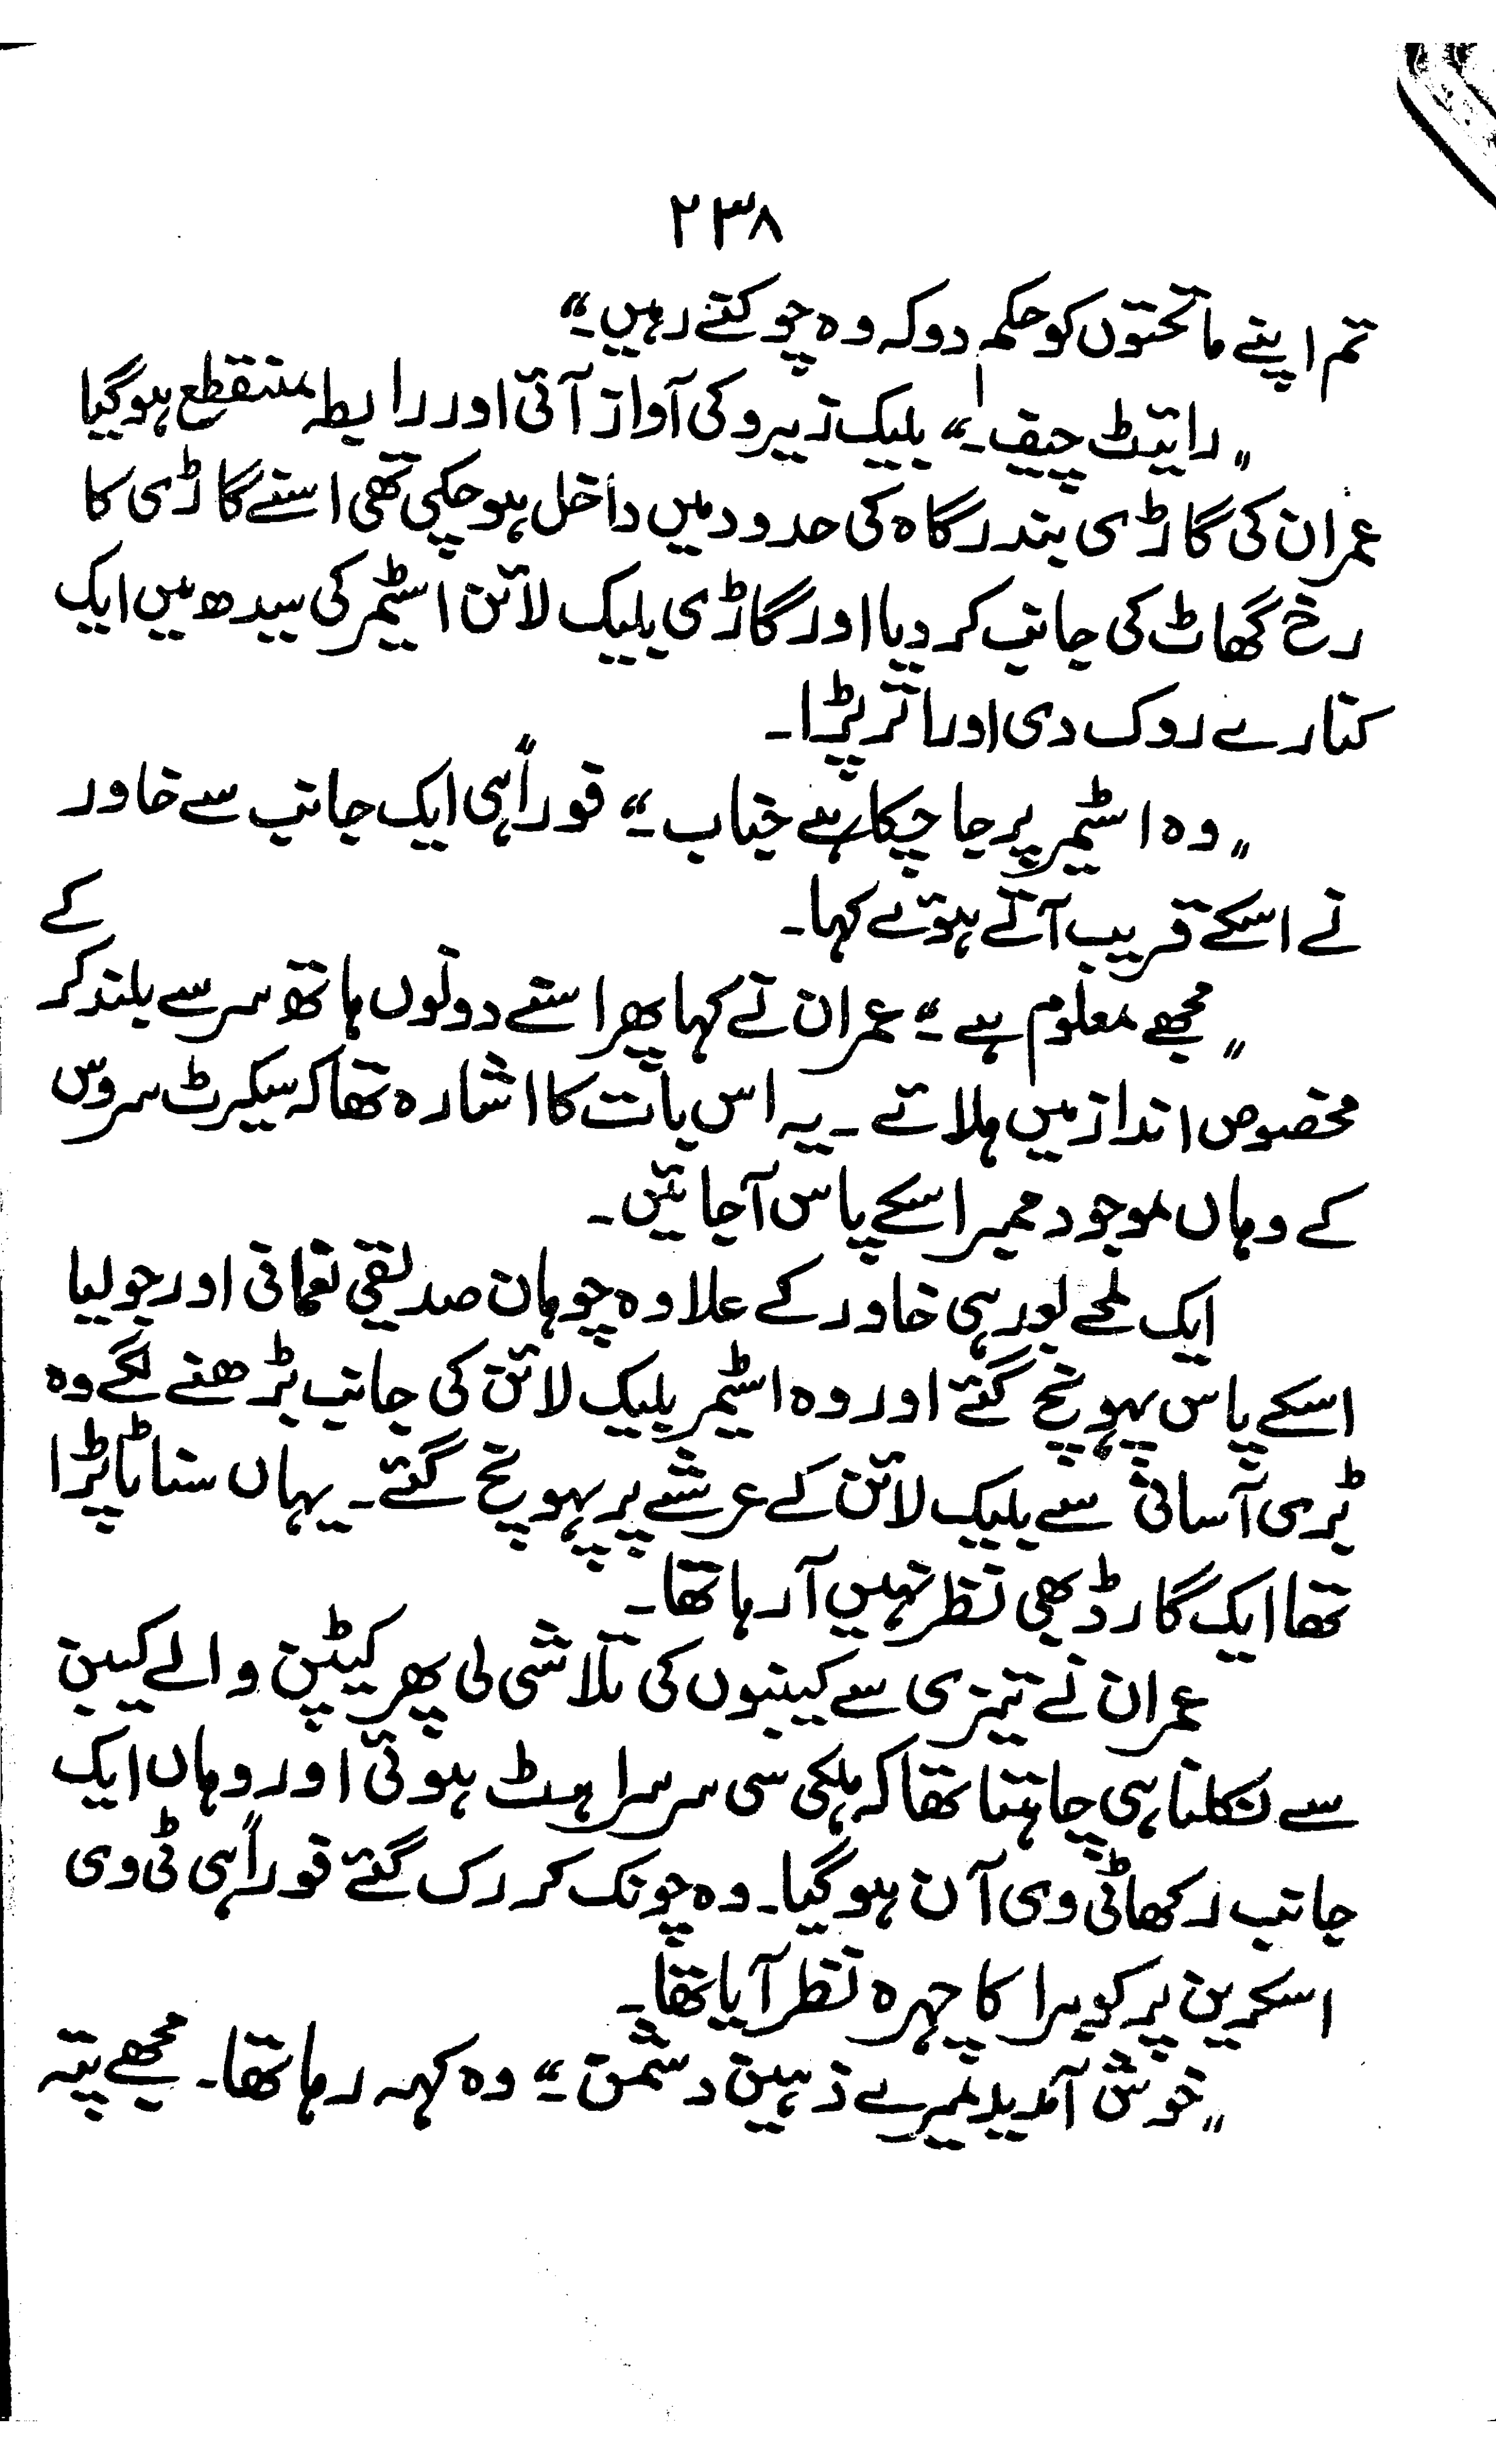 ۲۳۸
تم اپنے ماتحتوں کو حکم دو کہ وہ چوکنے رہیں۔“
”رائیٹ چیف۔“ بلیک زیرو کی آواز آئی اور رابطہ منقطع ہوگیا
عمران کی گاڑی بندرگاہ کی حدود میں داخل ہوچکی تھی اسنے گاڑی کا
رخ گھاٹ کی جانب کر دیا اور گاڑی بلیک لائن اسٹیمر کی سیدھ میں ایک
کنارے روک دی اور اتر پڑا۔
”وہ اسٹیمر پر جا چکا ہے جناب۔“ فوراً ہی ایک جانب سے خاور
نے اسکے قریب آتے ہوئے کہا۔
”مجھے معلوم ہے۔“ عمران نے کہا پھر اسنے دونوں ہاتھ سر سے بلند کر کے
مخصوص انداز میں ہلائے۔ یہ اس بات کا اشارہ تھا کہ سیکرٹ سروس
کے وہاں موجود ممبر اسکے پاس آجائیں۔
ایک لمحے بعد ہی خاور کے علاوہ چوہان صدیقی نعمانی اور جولیا
اسکے پاس پہونچ گئے اور وہ اسٹیمر بلیک لائن کی جانب بڑھنے لگے وہ
بڑی آسانی سے بلیک لائن کے عرشے پر پہونچ گئے۔ یہاں سناٹا پڑا
تھا ایک گارڈ بھی نظر نہیں آرہا تھا۔
عمران نے تیزی سے کیبنوں کی تلاشی لی پھر کیپٹن والے کیبن
سے نکلنا ہی چاہتا تھا کہ ہلکی سی سرسراہٹ ہوئی اور وہاں ایک
جانب رکھا ٹی وی آن ہوگیا۔ وہ چونک کر رک گئے فوراً ہی ٹی وی
اسکرین پر کوبرا کا چہرہ نظر آیا تھا۔
”خوش آمدید میرے ذہین دشمن۔“ وہ کہہ رہا تھا۔ مجھے پتہ